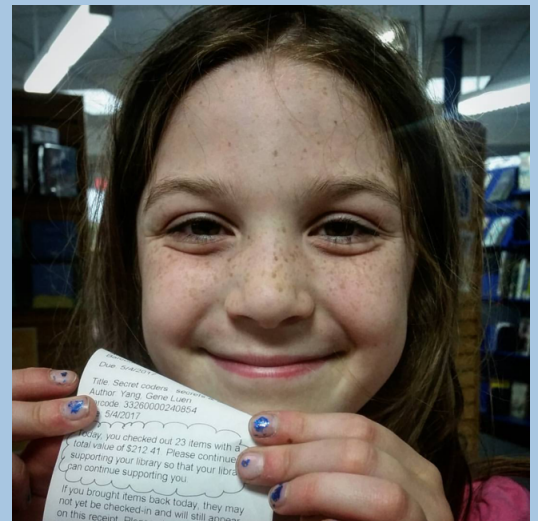 Due: 5/4/2017
Title: Secret coders
Author: Yang, Gene Luen
rcode: 33260000240854
5/4/2017
Today, you checked out 23 items with a
total value of $212.41. Please continue
supporting your library so that your libra
can continue supporting you.
If you brought items back today, they may
not yet be checked-in and will still appear
on this receipt.